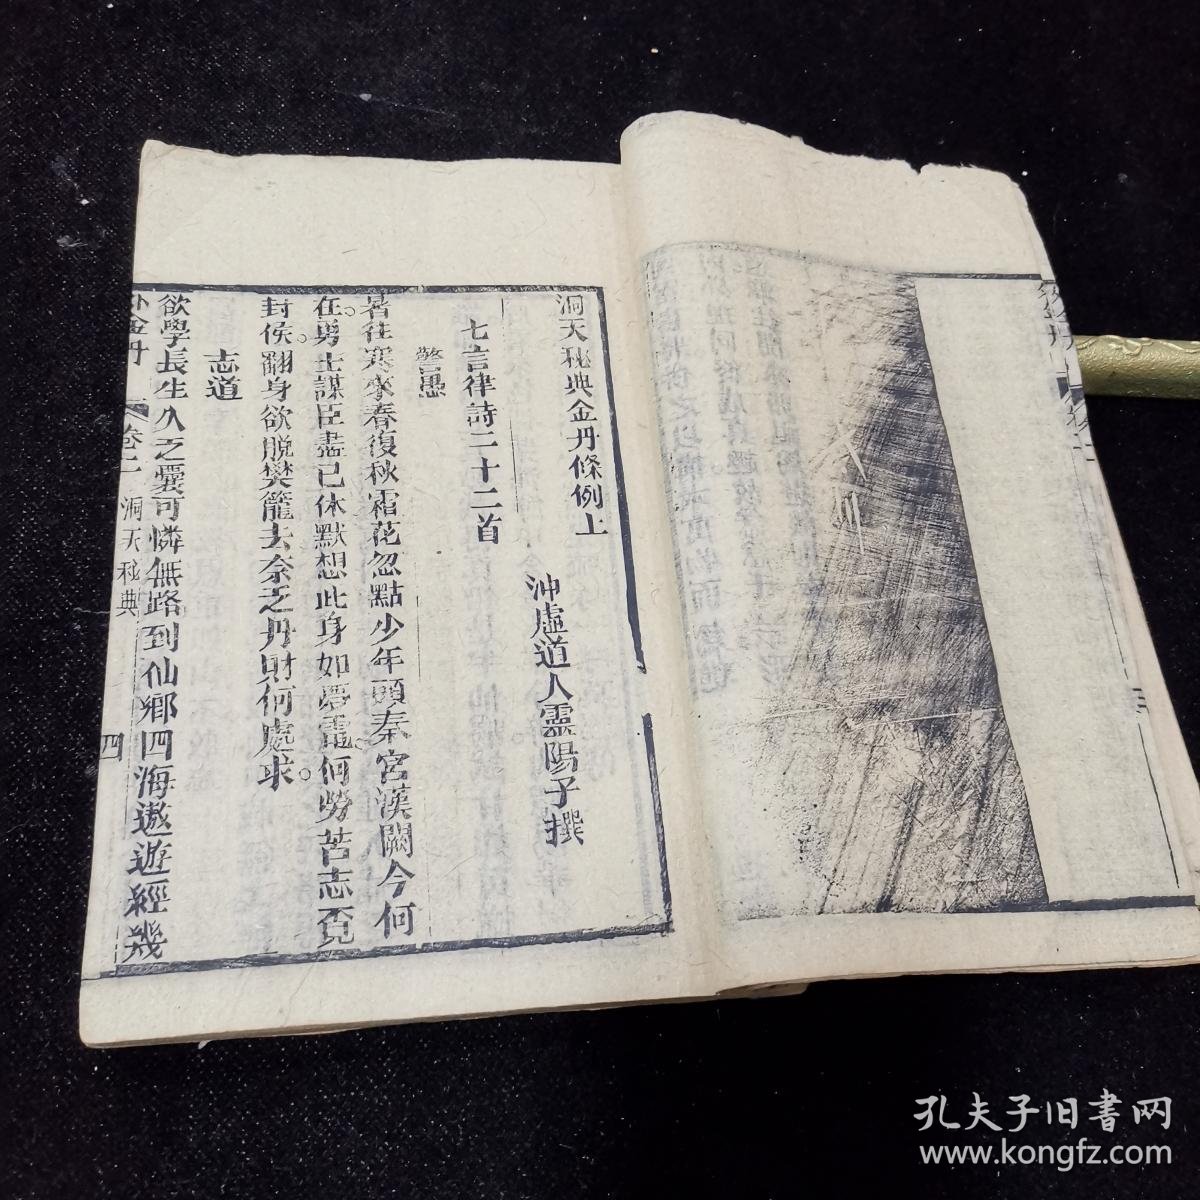 洞天秘典金丹條例上
沖虛道人靈陽子撰
七言律詩二十二首
警愚
暑往寒來春復秋霜花忽點少年頭秦宮漢闕今何
在勇士謀臣盡已休默想此身如夢電何勞苦志覓
封侯翻身欲脫樊籠去奈乏丹財何處求
志道
欲學長生久乏囊可憐無路到仙鄉四海遨遊經幾
外金丹
卷二
洞天秘典
四
孔夫子旧書网
www.kongfz.com